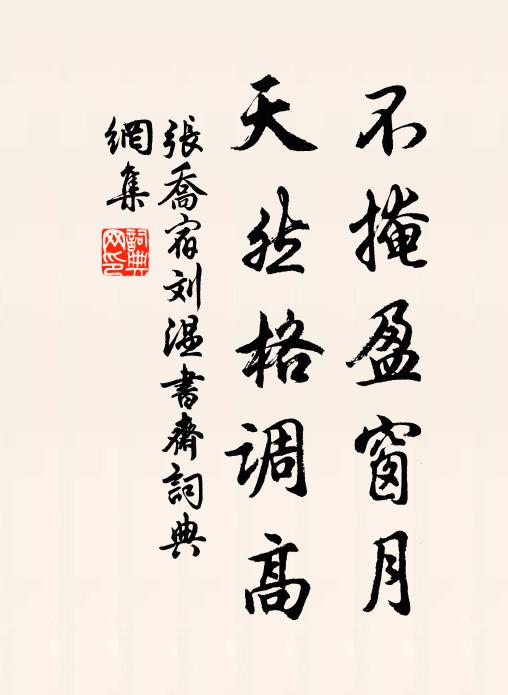 不掩盈窗月
天然格调高
張喬宿刘温書齋詞典
網集
詞典
网印